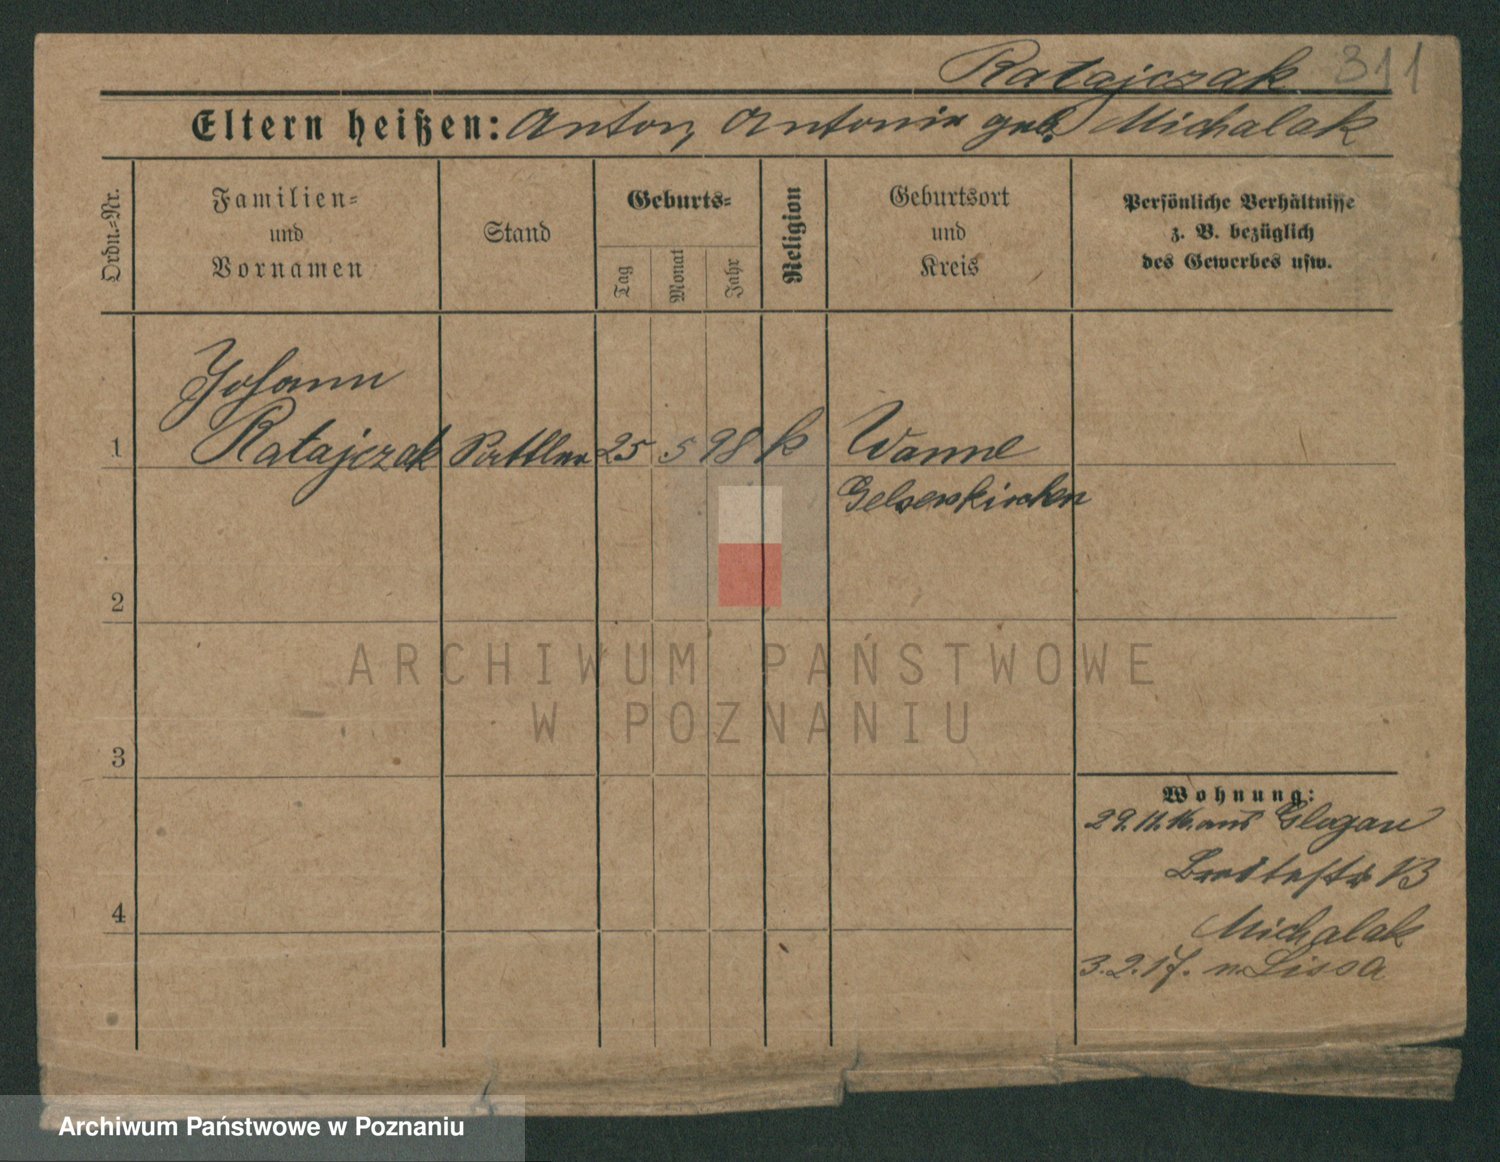 Ratajczak 311
Eltern heißen: Anton, Antonie geb. Michalak
Ordn.-Nr.
Familien-
und
Vornamen
Stand
Geburts-
Tag
Monat
Jahr
Religion
Geburtsort
und
Kreis
Persönliche Verhältnisse
z. B. bezüglich
des Gewerbes usw.
Johann
1 Ratajczak Sattler 25 5 98 k Wanne
Gelsenkirchen
2
ARCHIWUM PAŃSTWOWE
W POZNANIU
3
Wohnung:
29.11.16. aus Glogau
4
Breitestr 13
Michalak
3.2.17. n. Lissa
Archiwum Państwowe w Poznaniu